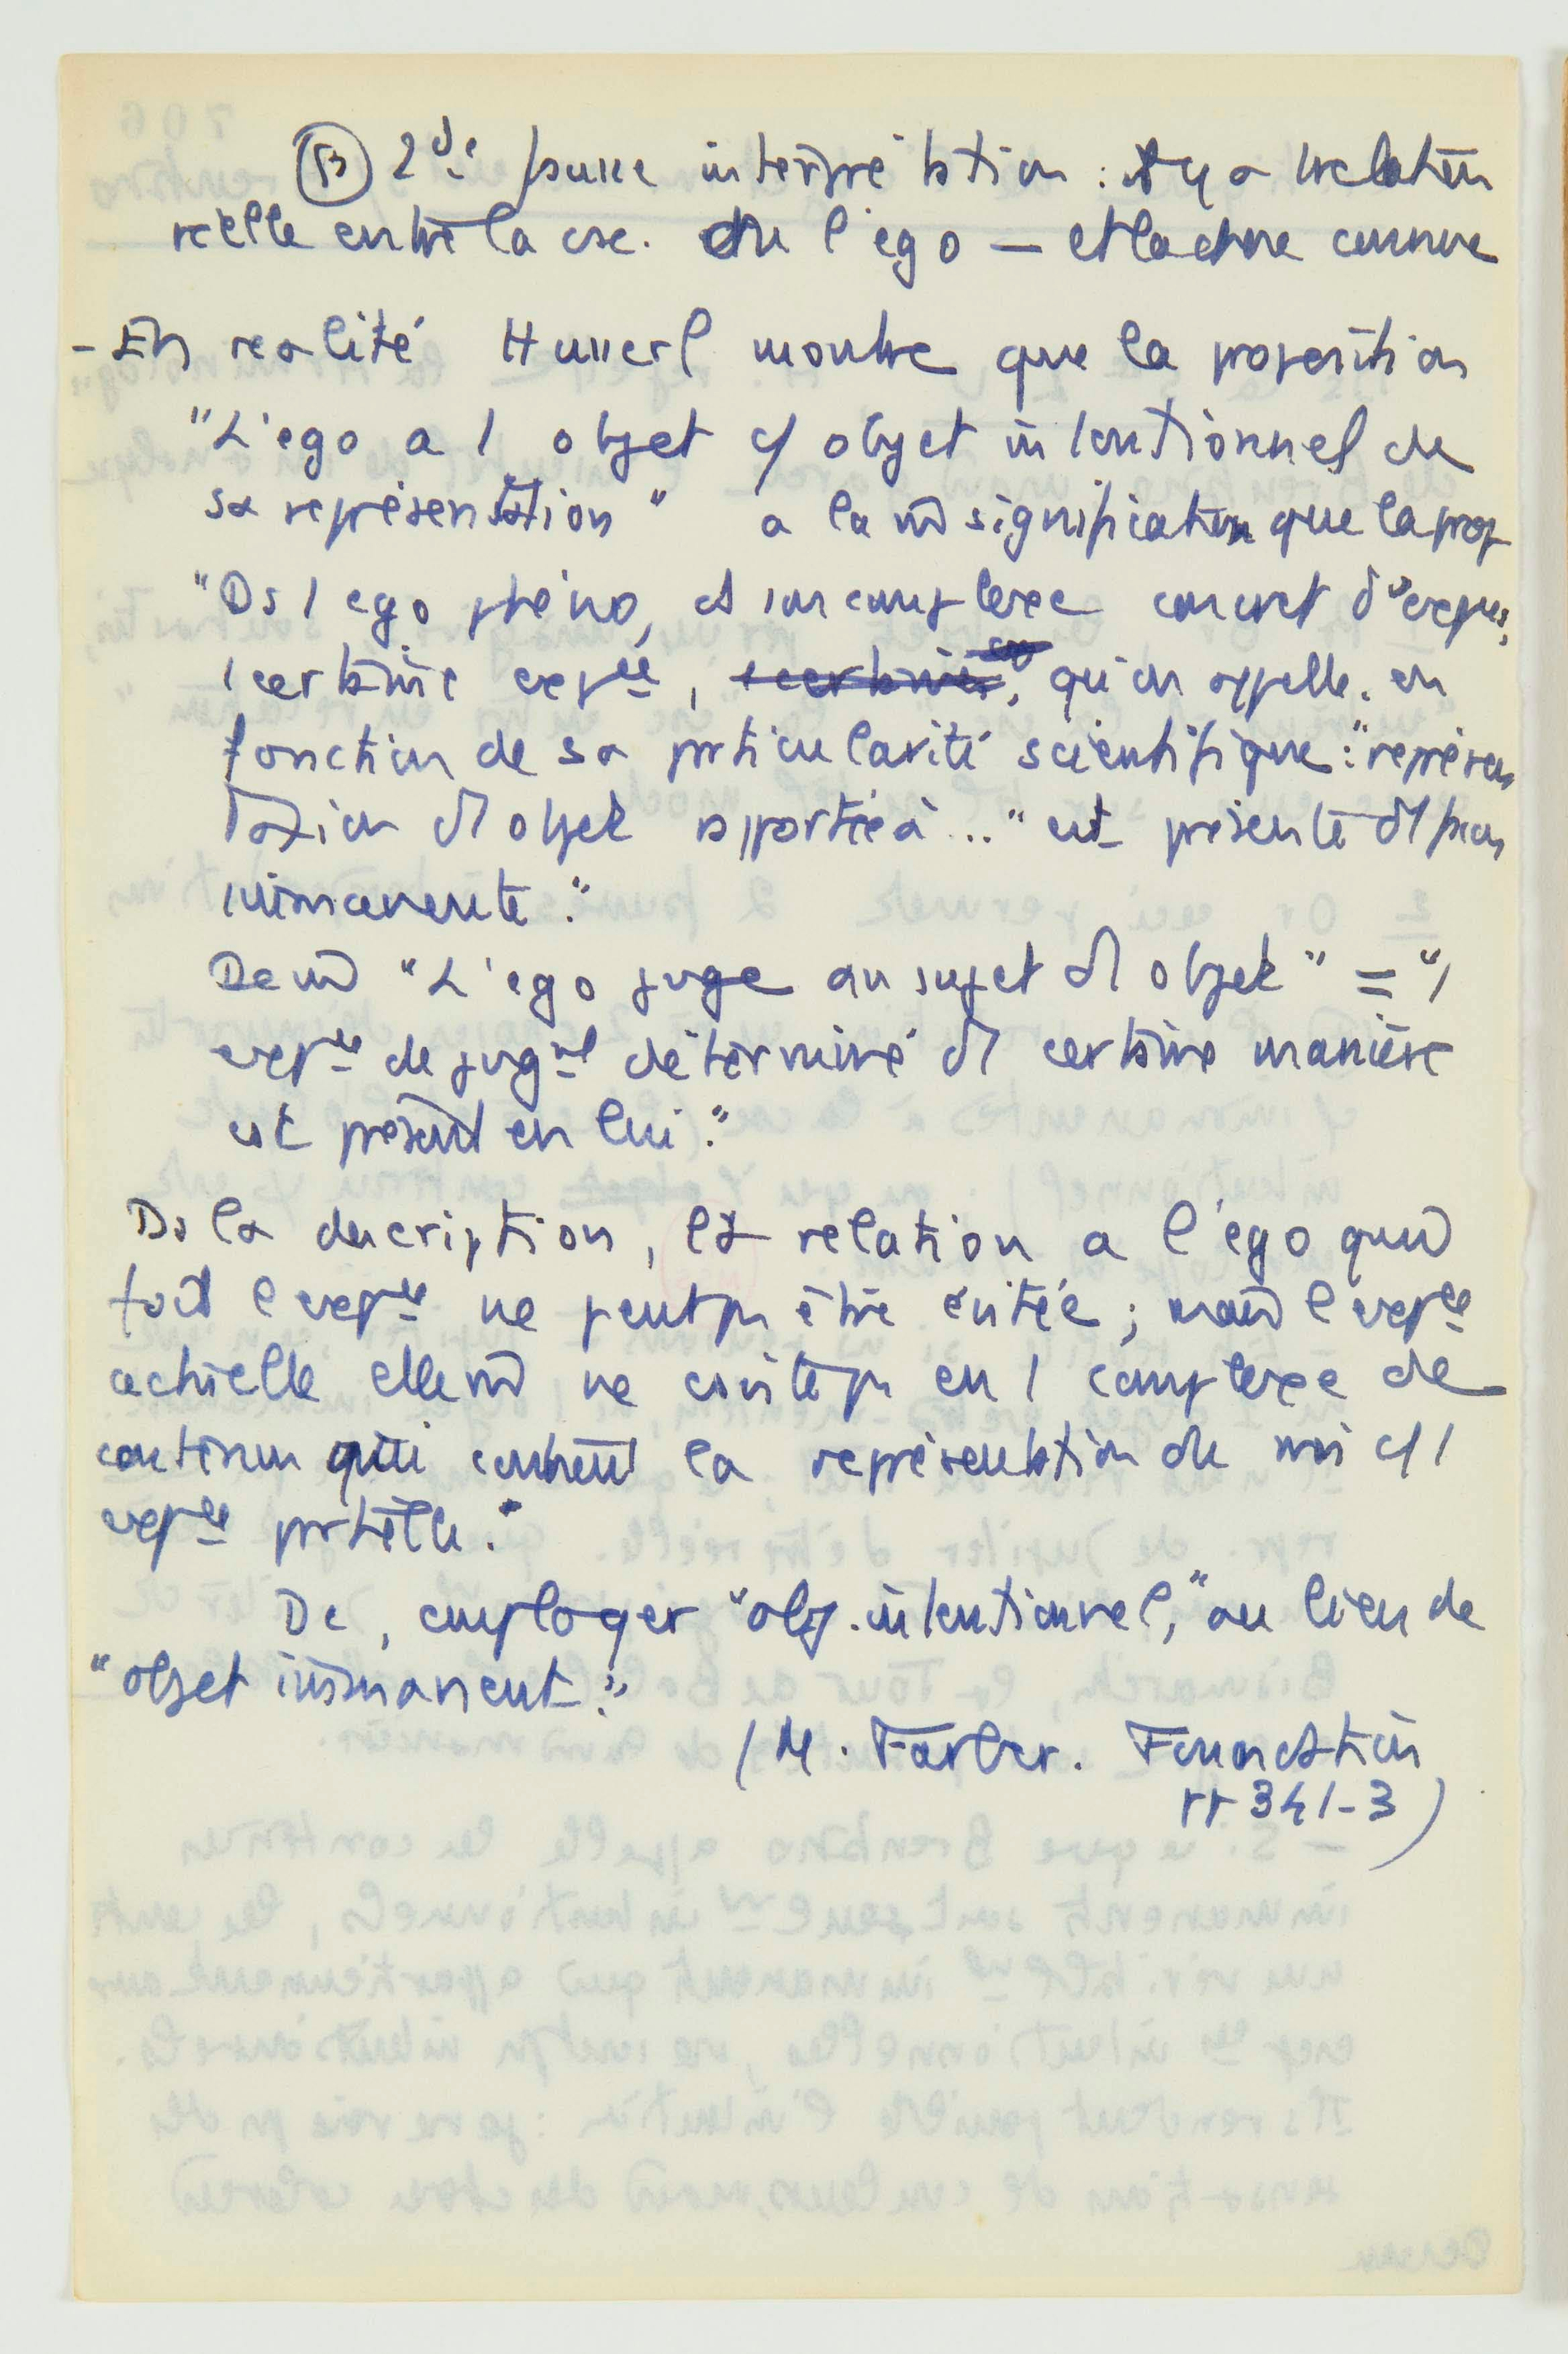 (B) 2de fausse interprétation : il y a 1 relation
réelle entre la csc. ou l'ego — et la chose connue
- En realité Husserl montre que la proposition
"L'ego a 1 objet c/ objet intentionnel de
sa représentation" a la m̂ signification que la prop
"Ds l ego phéno, et son complexe concret d'expces,
1 certaine expce, qu'on appelle en
fonction de sa pticularité scientifique : "représen
tation d'1 objet apportée à ..." est présente d'1 façon
immanente."
De m̂ "L'ego juge au sujet d'1 objet" = "1
expce de jugmt déterminé d'1 certaine manière
est présent en lui."
Ds la description, la relation a l'ego qui
fait l expce ne peut ps être évitée ; mais l expce
actuelle elle m̂ ne consiste ps en 1 complexe de
contenu qui contient la représentation du moi c/ 1
expce ptielle."
Dc, employer "obj. intentionnel," au lieu de
"objet immanent."
(M. Farber. Foundation
pp 341-3)